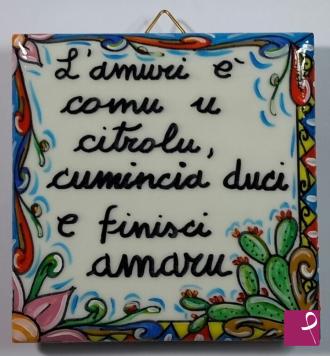 L'amuri è
comu u
citrolu,
cumincia duci
e finisci
amaru